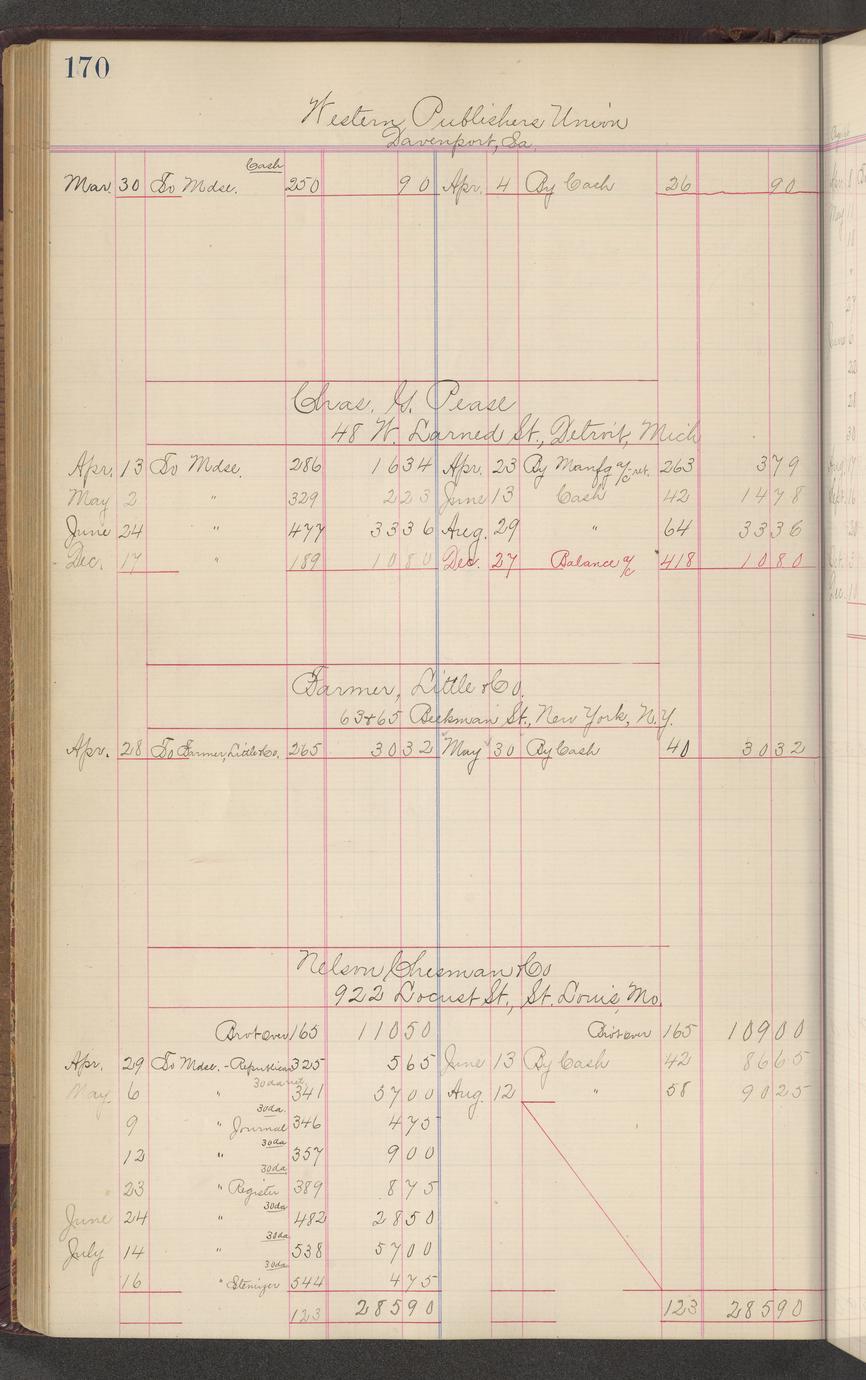 170
Western Publishers Union
Davenport, Ia.
Cash
Mar. 30 To Mdse. 250 90 Apr. 4 By Cash 26 90
Chas. G. Pease
48 W. Larned St., Detroit, Mich
Apr. 13 To Mdse. 286 1634 Apr. 23 By Manfg a/c ret. 263 379
May 2 329 223 June 13 Cash 42 1478
June 24 " 477 3336 Aug. 29 " 64 3336
Dec. 17 " 189 1080 Dec. 27 Balance a/c 418 1080
Farmer, Little & Co.
63 & 65 Beekman St., New York, N.Y.
Apr. 28 To Farmer, Little & Co. 265 3032 May 30 By Cash 40 3032
Nelson Chesman & Co
922 Locust St., St. Louis, Mo.
Brot over 165 11050 Brot over 165 10900
Apr. 29 To Mdse. - Republican 325 565 June 13 By Cash 42 8665
30 da net
May 6 " 341 5700 Aug. 12 " 58 9025
30 da.
9 " Journal 346 475
30 da
12 " 357 900
30 da
23 " Register 389 875
30 da
June 24 " 482 2850
30 da
July 14 " 538 5700
30 da
16 " 544 475
123 28590 123 28590